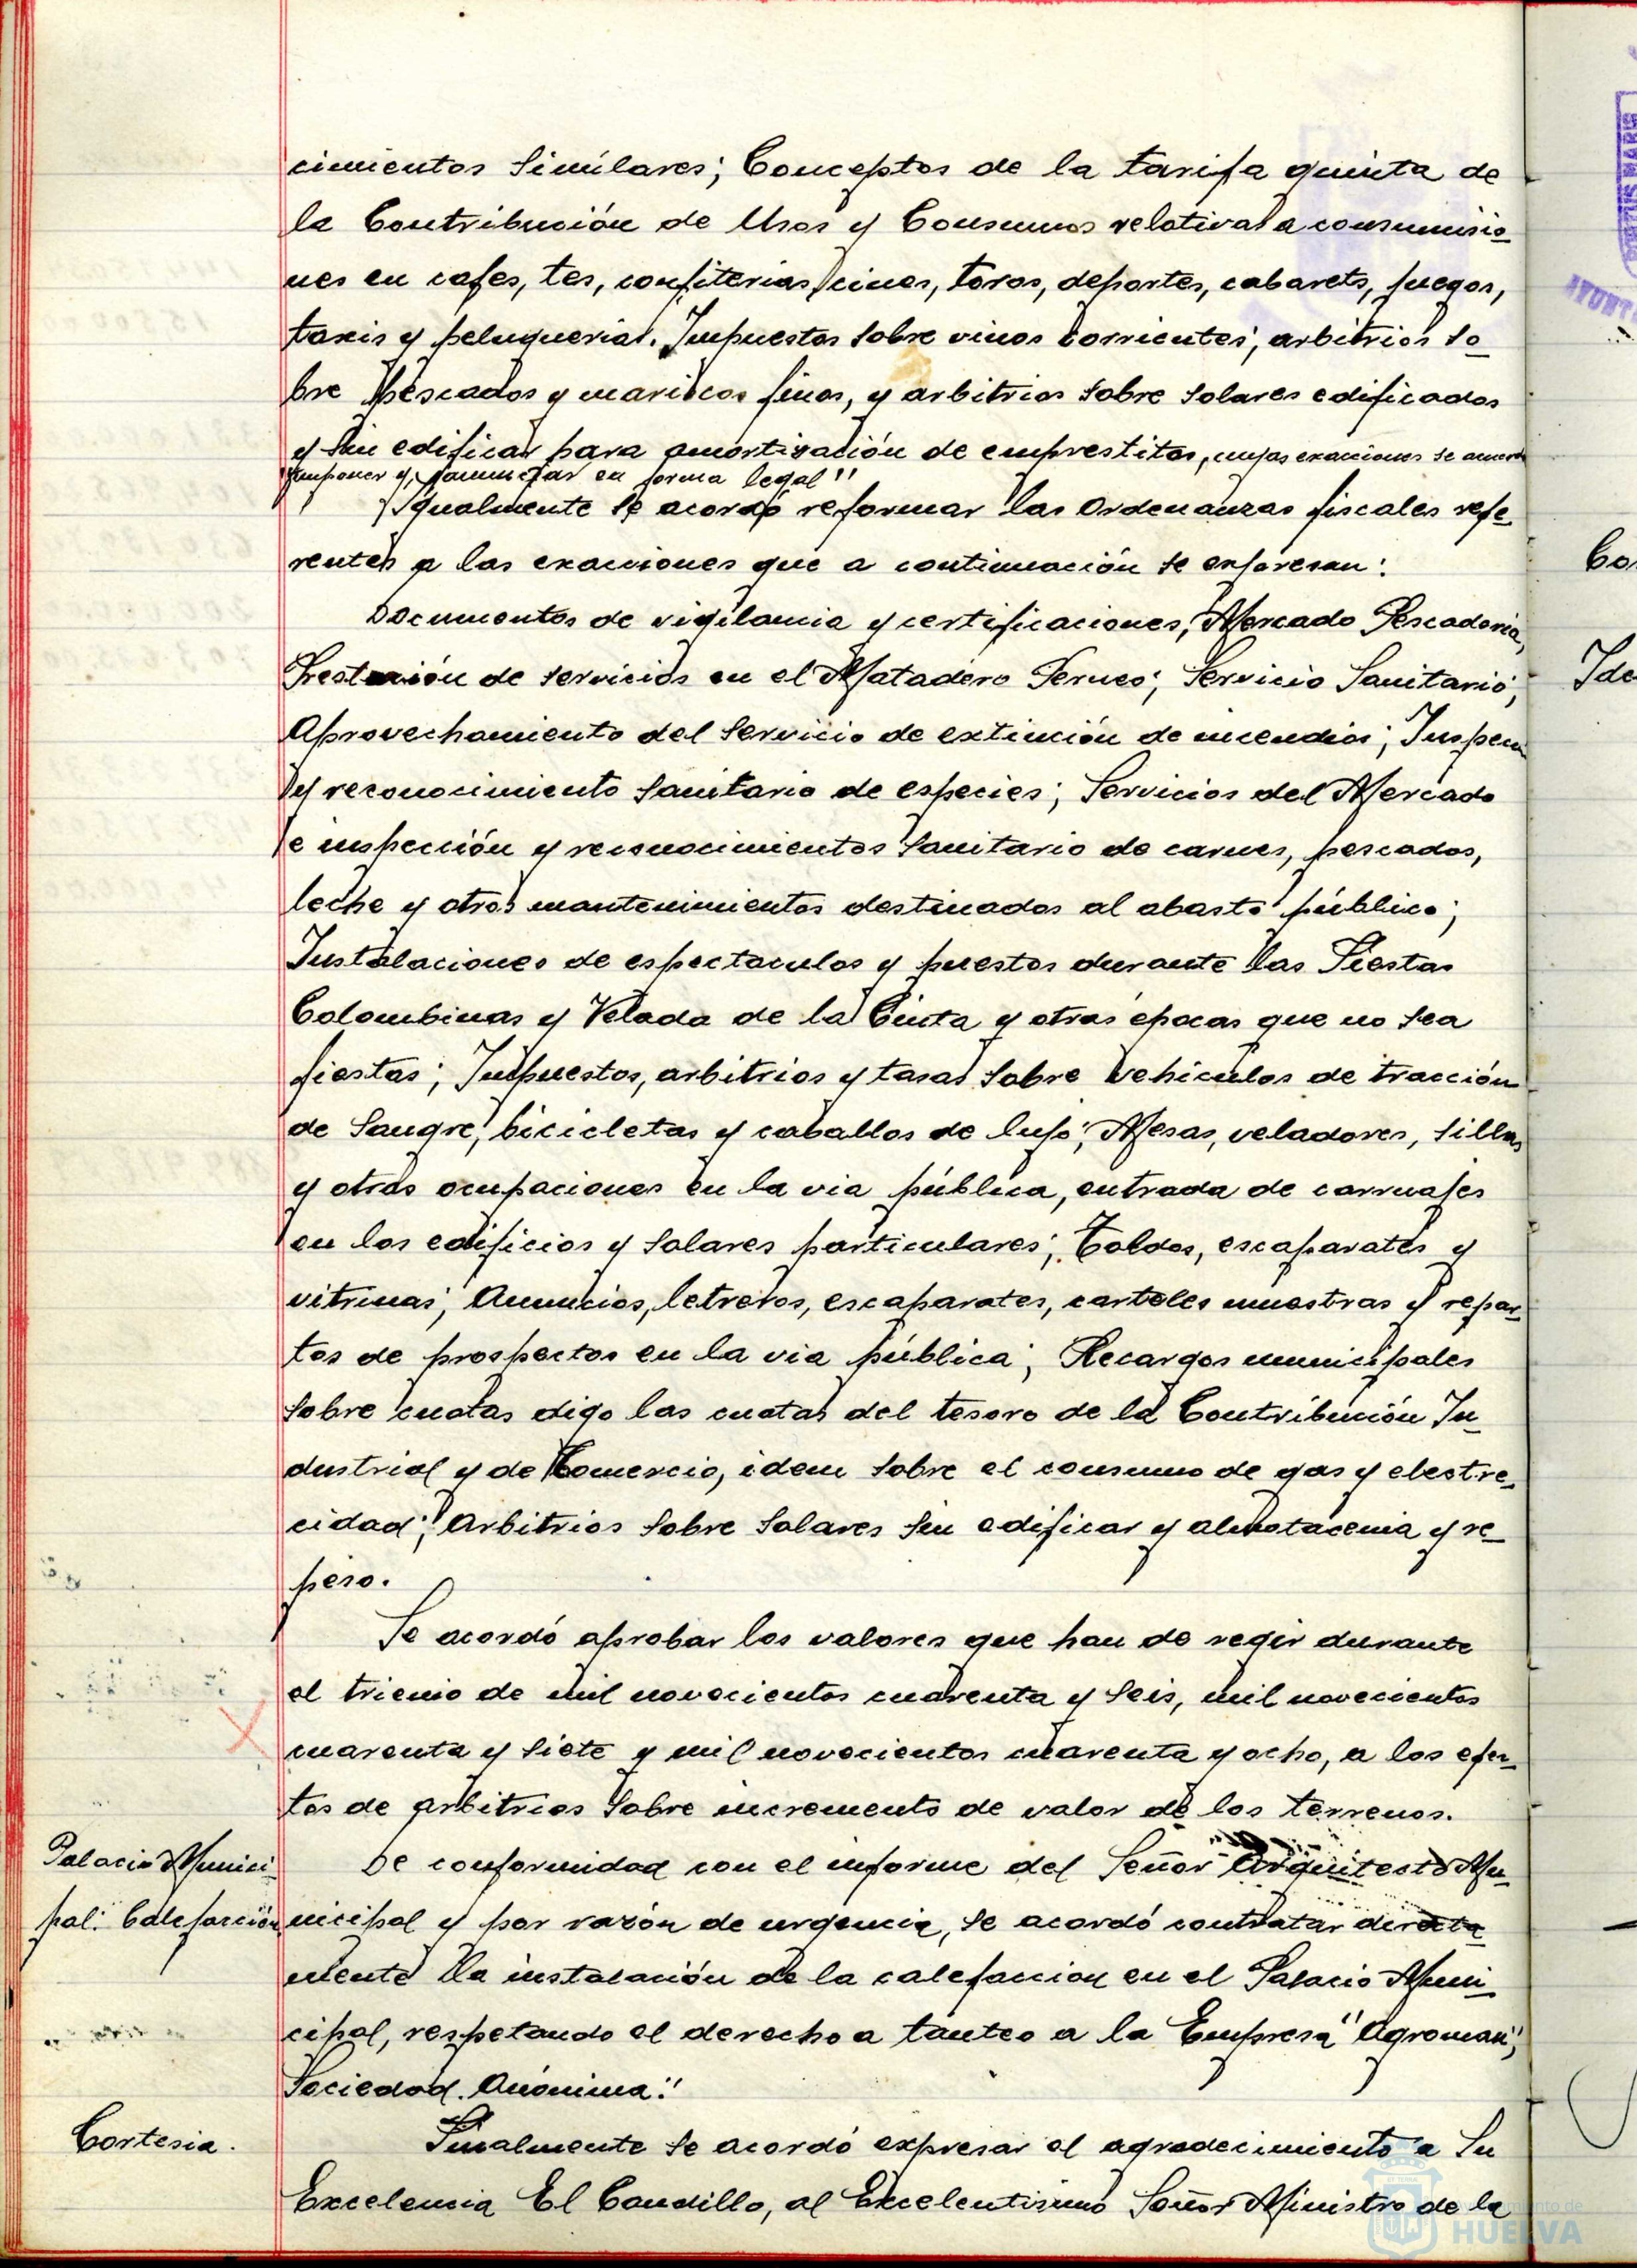 cimientos similares; Conceptos de la tarifa quinta de
la Contribución de Usos y Consumos relativas a consumisio-
nes en cafes, tes, confiterias, cines, toros, deportes, cabarets, juegos,
taxis y peluquerias. Impuestos sobre vinos corrientes; arbitrios so-
bre pescados y mariscos finos, y arbitrios sobre solares edificados
y sin edificar para amortización de emprestitos, cuyas exacciones se acuerda
imponer y, tramitar en forma legal"
Igualmente se acordó reformar las Ordenanzas fiscales refe-
rentes a las exacciones que a continuación se expresan:
Documentos de vigilancia y certificaciones; Mercado Pescaderia,
Prestación de servicios en el Matadero Perneo; Servicio Sanitario;
Aprovechamiento del servicio de extinción de incendios; Inspecn
y reconocimiento sanitario de especies; Servicios del Mercado
e inspección y reconocimientos sanitario de carnes, pescados,
leche y otros mantenimientos destinados al abasto público;
Instalaciones de espectaculos y puestos durante las Fiestas
Colombinas y Velada de la Cinta y otras épocas que no sea
fiestas; Impuestos, arbitrios y tasas sobre vehículos de tracción
de sangre, bicicletas y caballos de lujo; Mesas, veladores, sillas
y otras ocupaciones en la via pública, entrada de carruajes
en los edificios y solares particulares; Toldos, escaparates y
vitrinas; Anuncios, letreros, escaparates, carteles muestras y repar-
tos de prospectos en la via pública; Recargos municipales
sobre cuotas digo las cuotas del tesoro de la Contribución In-
dustrial y de Comercio, idem sobre el consumo de gas y electre-
cidad; Arbitrios sobre solares sin edificar y almotacenia y re-
peso.
Se acordó aprobar los valores que han de regir durante
el trienio de mil novecientos cuarenta y seis, mil novecientos
cuarenta y siete y mil novecientos cuarenta y ocho, a los efec-
tos de arbitrios sobre incremento de valor de los terrenos.
Palacio Munici
pal: Calefacción
De conformidad con el informe del Señor Arquitecto Mu-
nicipal y por razón de urgencia, se acordó contratar directa-
mente la instalación de la calefaccion en el Palacio Muni-
cipal, respetando el derecho a tanteo a la Empresa "Agroman",
Sociedad Anónima."
Cortesia.
Finalmente se acordó expresar el agradecimiento a Su
Excelencia El Caudillo, al Excelentisimo Señor Ministro de la
Ayuntamiento de
HUELVA
Co
Ide